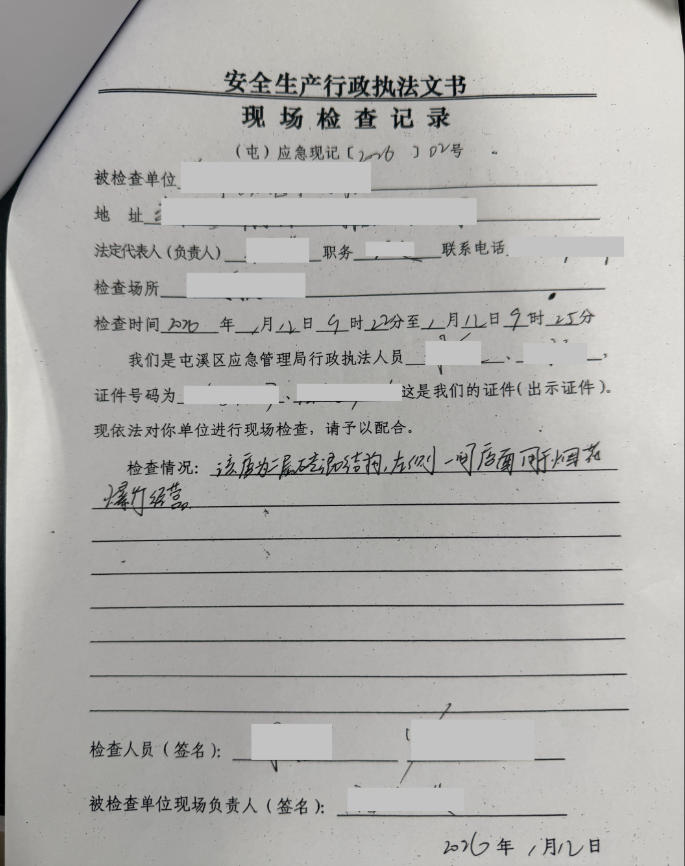 安全生产行政执法文书
现场检查记录
（屯）应急现记〔2026〕02号
被检查单位
地 址
法定代表人（负责人） 职务 联系电话
检查场所
检查时间 2026 年 1月12日 9时22分至 1月12日 9时25分
我们是屯溪区应急管理局行政执法人员 、 ，
证件号码为 、 这是我们的证件（出示证件）。
现依法对你单位进行现场检查，请予以配合。
检查情况： 该店为二层砖混结构，左侧一间店面用于烟花
爆竹经营。
检查人员（签名）：
被检查单位现场负责人（签名）：
2026 年 1月12日